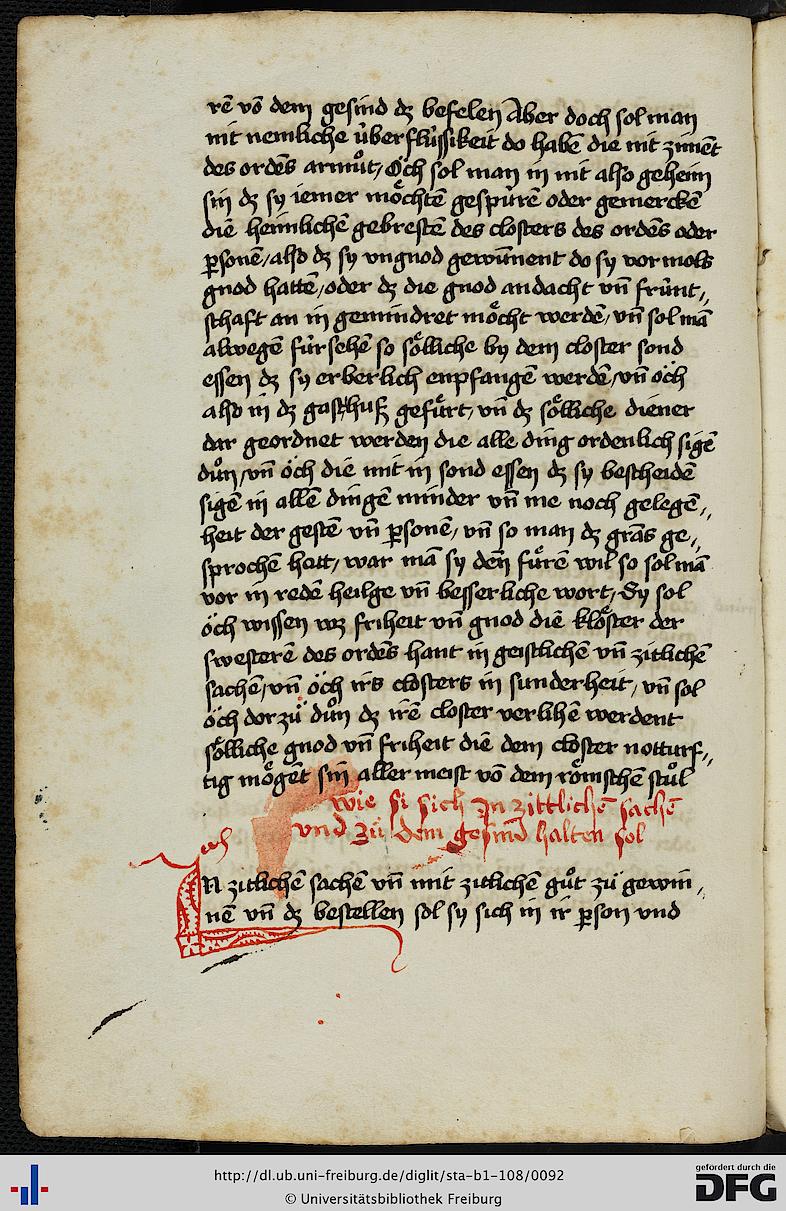 rē vō dem gesind dz befelen Aber doch sol man
nit nemliche überflüssikeit do habē die nit zimēt
des ordēs armůt / Och sol man in nit also geheim
sin dz sy iemer möchtē gespürē oder gemerckē
die heimlichē gebrestē des closters des ordēs oder
psonē / also dz sy vngnod gewūnent do sy vormols
gnod hattē / oder dz die gnod andacht vn̄ frünt〃
schaft an in gemindret möcht werdē / vn̄ sol mā
alwegē fürsehē so sölliche by dem closter sond
essen dz sy erberlich enpfangē werdē / vn̄ öch
also in dz gasthuß gefürt / vn̄ dz sölliche diener
dar geordnet werden die alle ding ordenlich sigē
důn / vn̄ öch die mit in sond essen dz sy bescheidē
sigē in allē dingē minder vn̄ me noch gelegē〃
heit der gestē vn̄ psonē / vn̄ so man dz grās ge〃
sprochen hatt / war mā sy den fürē wil so sol mā
vor in redē heilge vn̄ besserliche wort / Sy sol
öch wissen wz friheit vn̄ gnod die klöster der
swesterē des ordēs hant in geistlichē vn̄ zitlichē
sachē / vn̄ öch irs closters in sunderheit / vn̄ sol
öch dorzů důn dz irē closter verlihē werdent
sölliche gnod vn̄ friheit die dem closter notturf〃
tig mögēt sin aller meist vō dem römschē stůl
wie si sich Jn zittlichē sachē
vnd zů dem gesind halten sol
IN zitlichē sachē vn̄ mit zitlichē gůt zů gewin〃
nē vn̄ dz bestellen sol sy sich in ir pson vnd
http://dl.ub.uni-freiburg.de/diglit/sta-b1-108/0092
© Universitätsbibliothek Freiburg
gefördert durch die
DFG